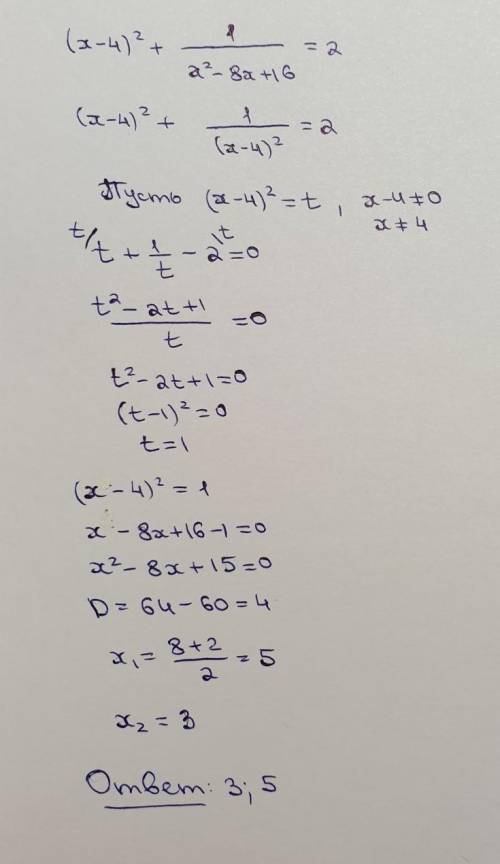 (x-4)² + 1/(x²-8x+16) = 2
(x-4)² + 1/(x-4)² = 2
Пусть (x-4)² = t, x-4≠0
x≠4
t/ t + 1/t - 2 \t = 0
(t²-2t+1)/t = 0
t²-2t+1=0
(t-1)²=0
t=1
(x-4)²=1
x-8x+16-1=0
x²-8x+15=0
D=64-60=4
x₁=(8+2)/2=5
x₂=3
Ответ: 3; 5